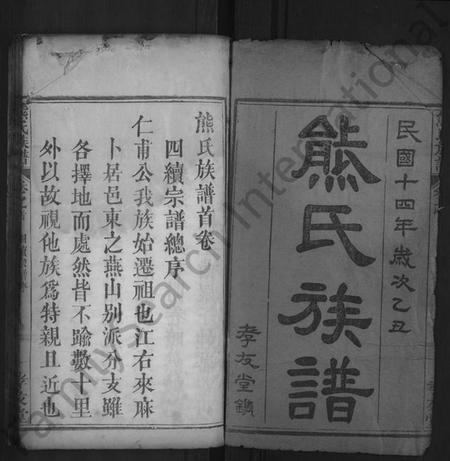 民國十四年歲次乙丑
熊氏族譜
孝友堂鐫
熊氏族譜首卷
四續宗譜總序
仁甫公我族始遷祖也江右來麻
卜居邑東之燕山別派分支雖
各擇地而處然皆不踰數十里
外以故視他族為特親且近也
熊氏族譜
孝友堂
FamilySearch International